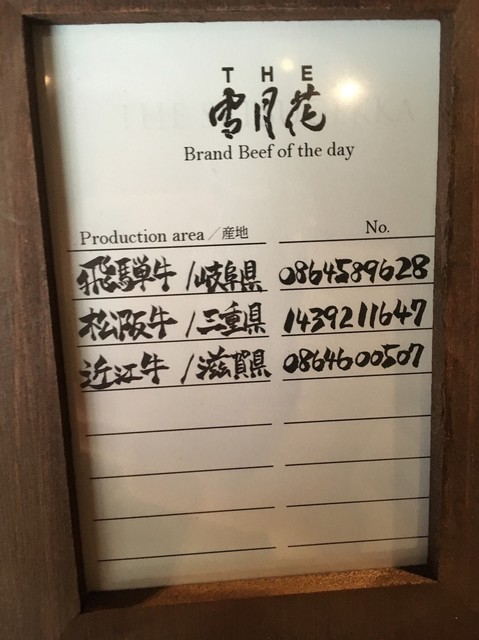 THE
雪月花
Brand Beef of the day
Production area／産地 No.
飛騨牛/岐阜県 0864589628
松阪牛/三重県 1439211647
近江牛/滋賀県 0864600507